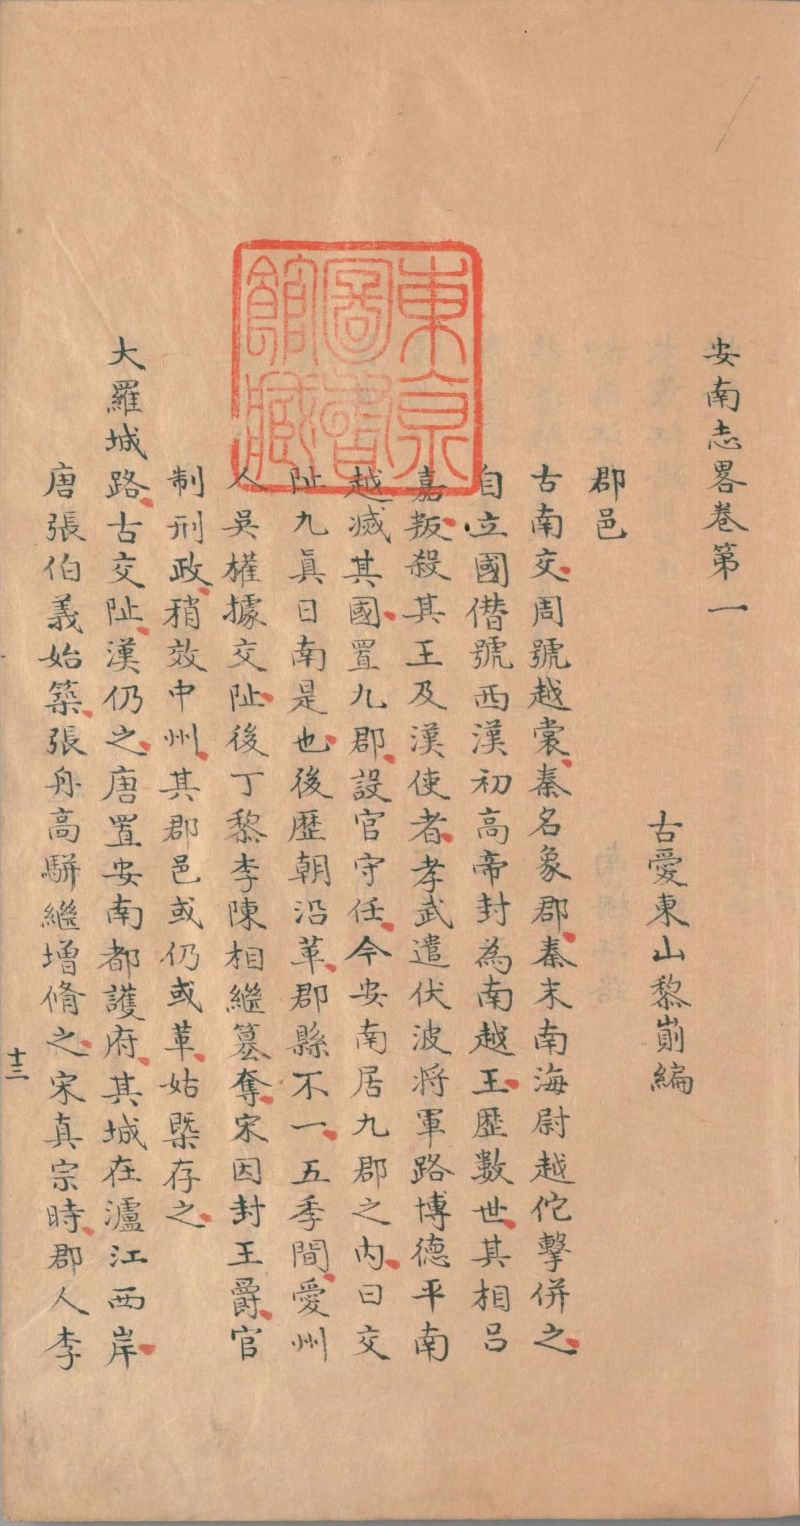 安南志畧卷第一
古愛東山黎崱編
郡邑
古南交周號越裳秦名象郡秦末南海尉越佗擊併之
自立國僭號西漢初高帝封為南越王歷數世其相呂
嘉叛殺其王及漢使者孝武遣伏波將軍路博德平南
越滅其國置九郡設官守任今安南居九郡之內曰交
阯九真日南是也後歷朝沿革郡縣不一五季間愛州
人吳權據交阯後丁黎李陳相繼篡奪宋因封王爵官
制刑政稍效中州其郡邑或仍或革姑槩存之
大羅城路古交阯漢仍之唐置安南都護府其城在瀘江西岸
唐張伯義始築張舟高駢繼增脩之宋真宗時郡人李
十三
東京
圖書
館藏